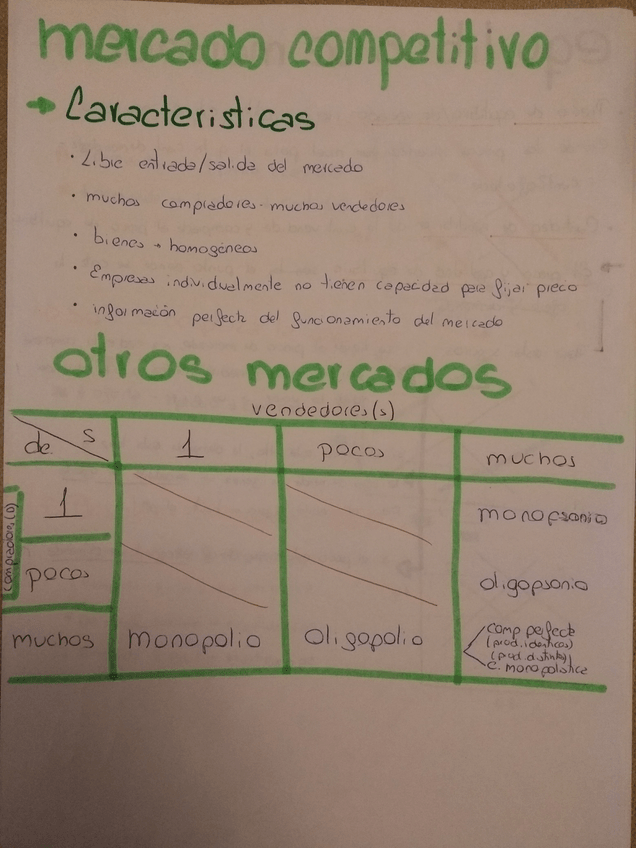 mercado competitivo
→ Caracteristicas
· Libre entrada/salida del mercado
· muchos compradores - muchos vendedores
· bienes + homogéneos
· Empresas individualmente no tienen capacidad para fijar precio
· información perfecta del funcionamiento del mercado
otros mercados
vendedores(s)
de s 1 pocos muchos
compradores(D)
1 monopsonio
pocos oligopsonio
muchos monopolio oligopolio comp perfecta
(prod. identicos)
(prod. distintos)
c. monopolistica